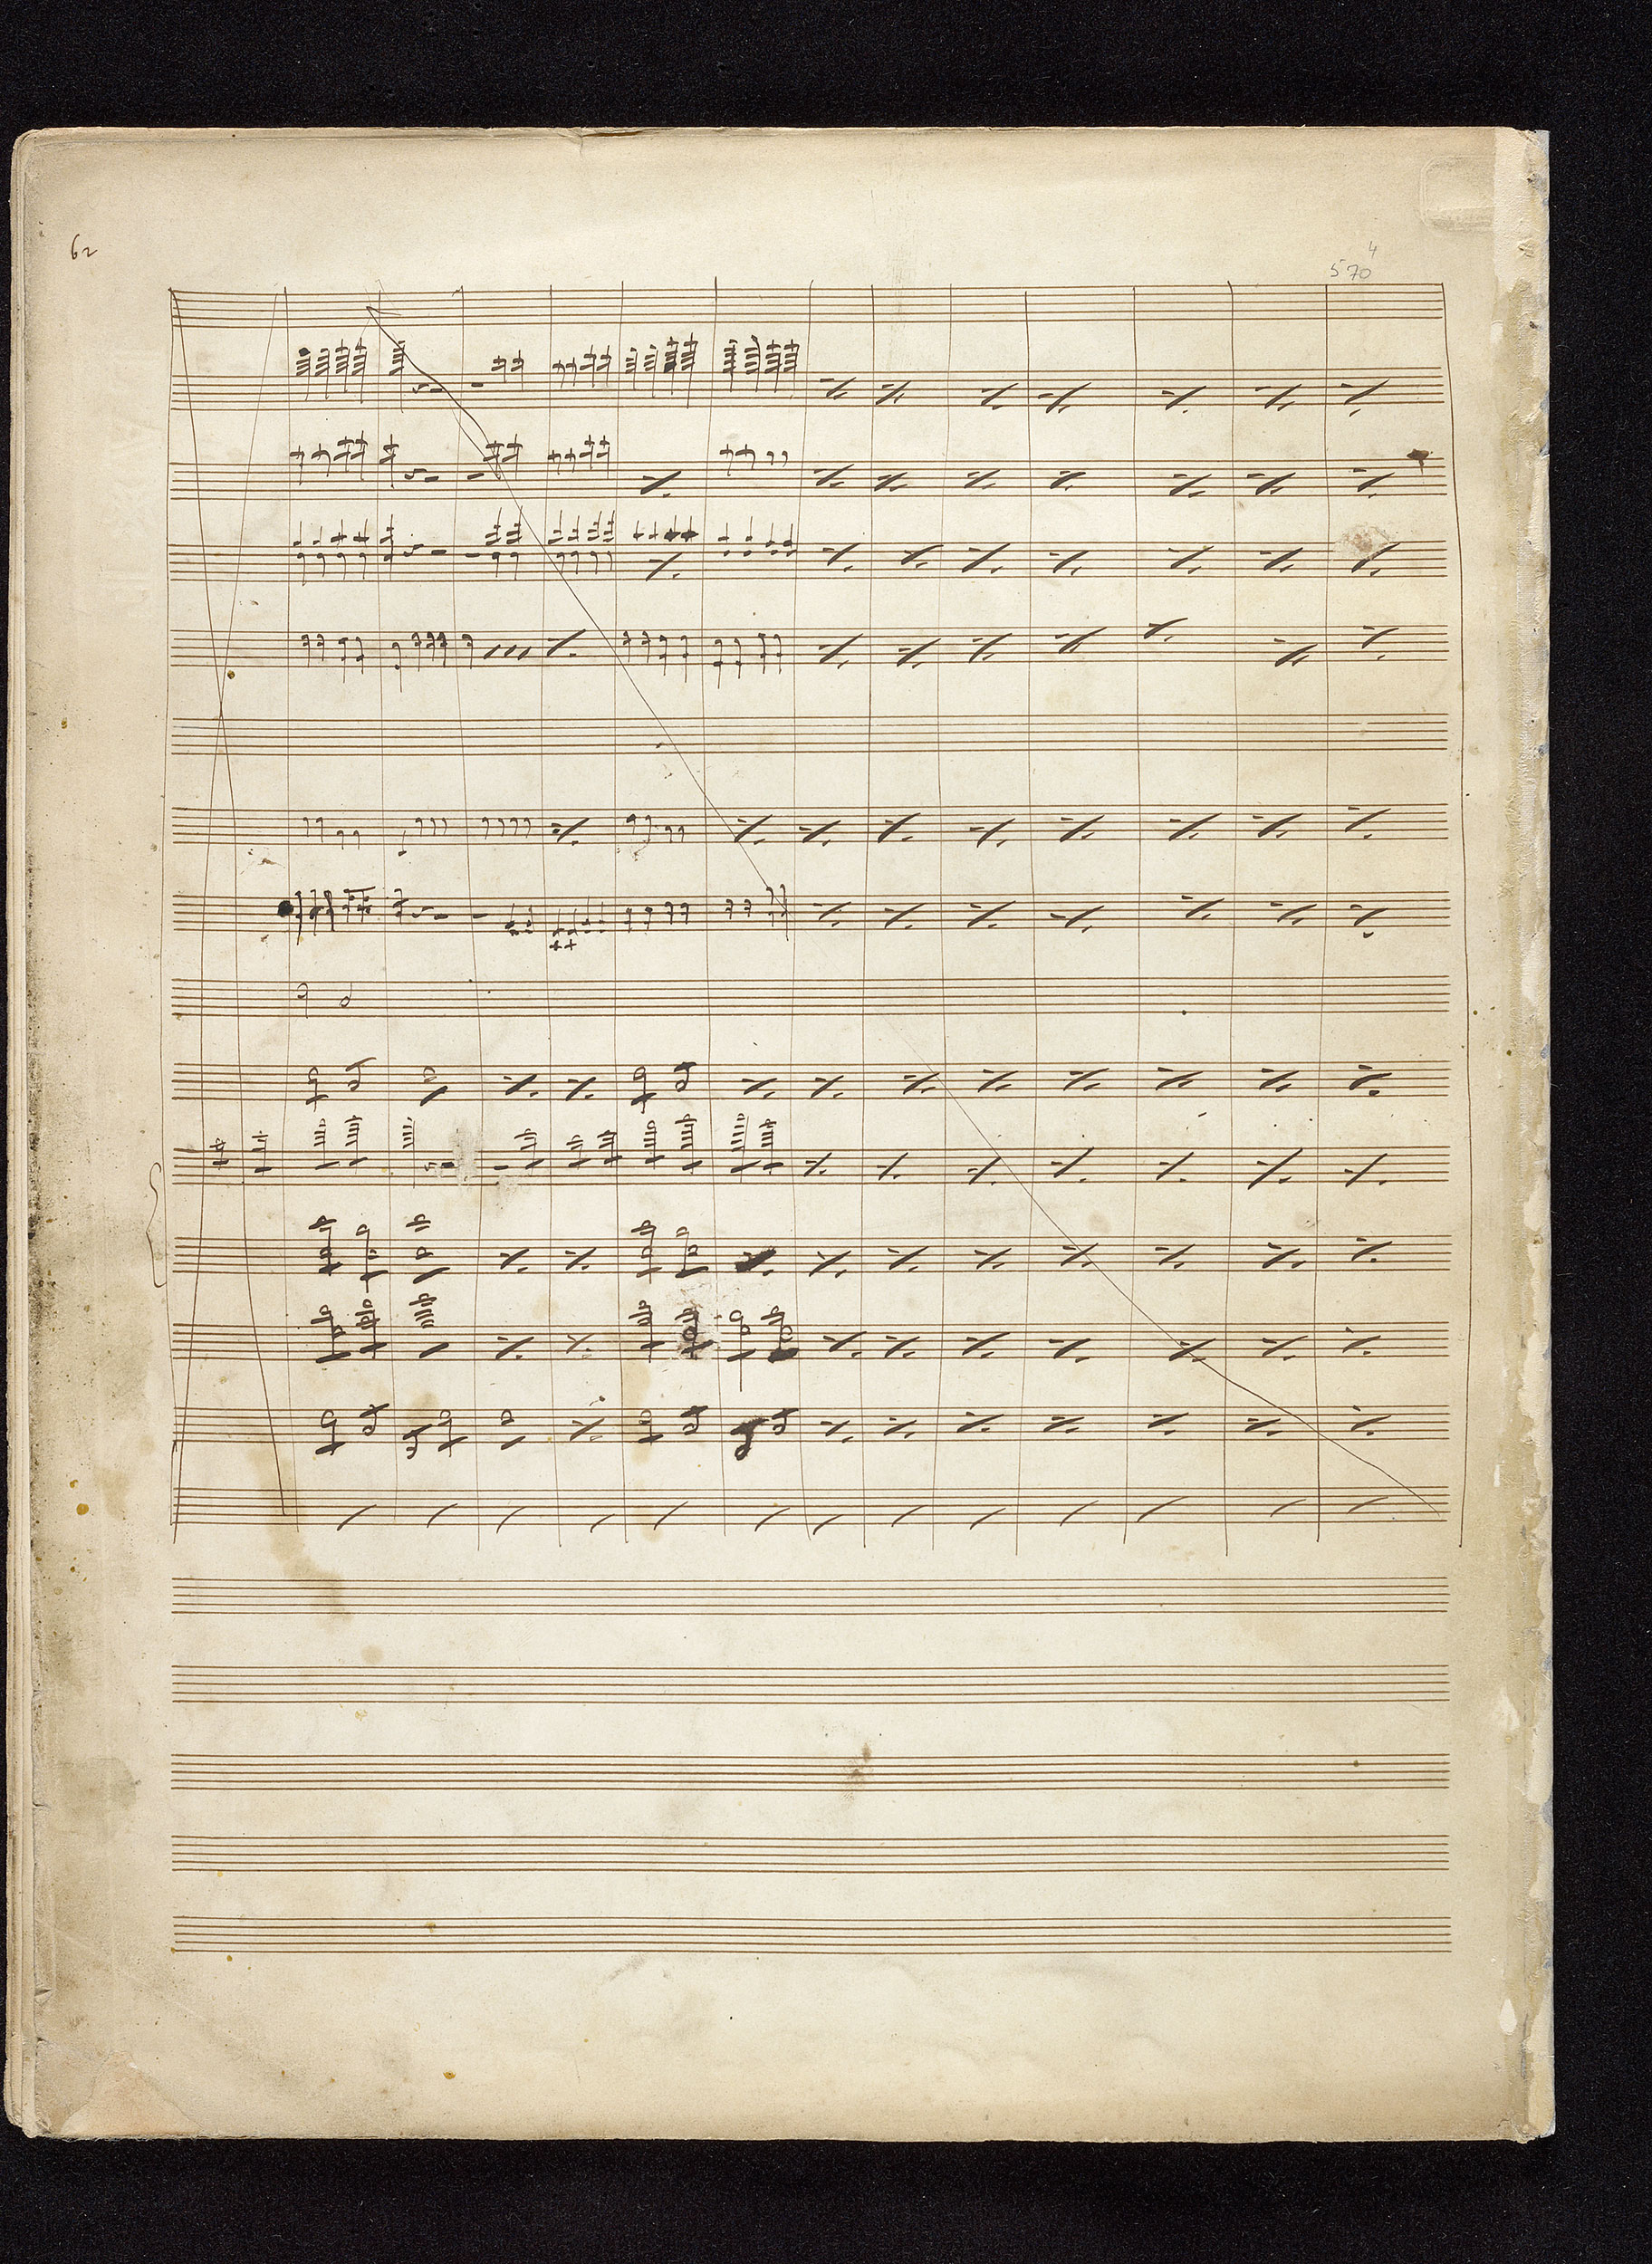 62
4
570